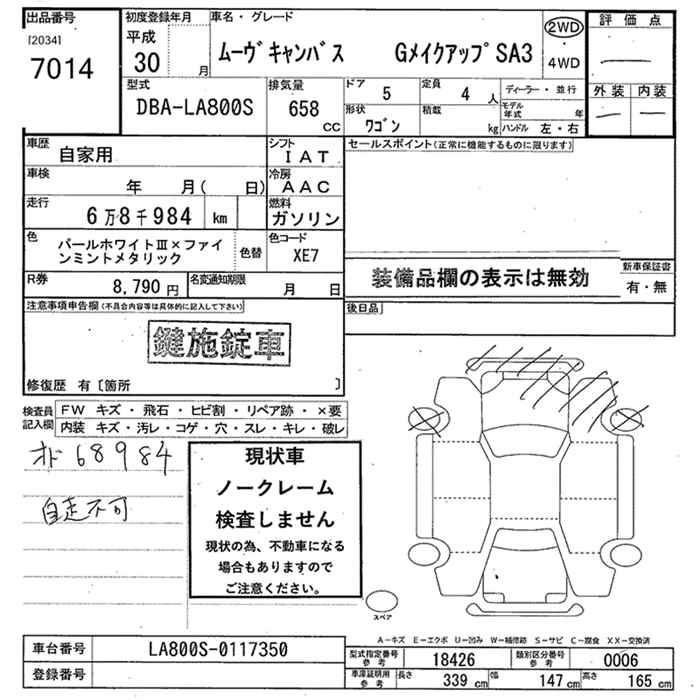 出品番号
[2034]
7014
初度登録年月
平成
30 月
車名・グレード
ムーヴキャンバス GメイクアップSA3
2WD
・
4WD
評価点
—
外装 内装
— —
型式
DBA-LA800S
排気量
658
CC
ドア
5
定員
4 人
ディーラー・並行
形状
ワゴン
積載
kg
モデル年式 年
ハンドル 左・右
車歴
自家用
シフト
IAT
セールスポイント(正常に機能するものに限ります)
車検
年 月( 日)
冷房
AAC
走行
6万8千984 km
燃料
ガソリン
色
パールホワイトⅢ×ファイ
ンミントメタリック
色替
色コード
XE7
R券
8,790円
名変通知期限
月 日
装備品欄の表示は無効
新車保証書
有・無
注意事項申告欄(不具合内容等は具体的に記入して下さい)
後日品
鍵施錠車
修復歴 有〔箇所 〕
検査員
記入欄
FW キズ・飛石・ヒビ割・リペア跡・×要
内装 キズ・汚レ・コゲ・穴・スレ・キレ・破レ
オド68984
自走不可
現状車
ノークレーム
検査しません
現状の為、不動車になる
場合もありますので
ご注意ください。
スペア
A-キズ E-エクボ U-凹み W-補修跡 S-サビ C-腐食 XX-交換済
車台番号
LA800S-0117350
登録番号
型式指定番号
参考
18426
類別区分番号
参考
0006
車庫証明用
参考
長さ
339 cm
幅
147 cm
高さ
165 cm